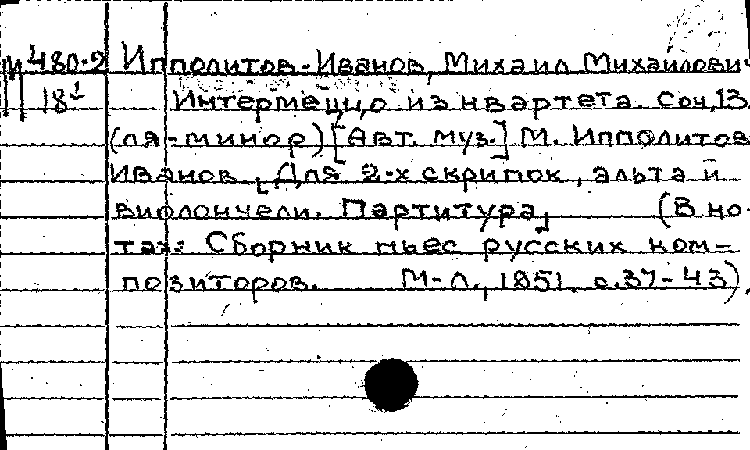 М 480-2 Ипполитов-Иванов, Михаил Михайлович
18¹ Интермеццо из квартета. Соч, 13
(ля-минор) [Авт. муз.] М. Ипполитов
Иванов [Для 2-х скрипок, альта и
виолончели. Партитура] (В но-
тах: Сборник пьес русских ком-
позиторов. М-Л., 1951, с. 37-43).